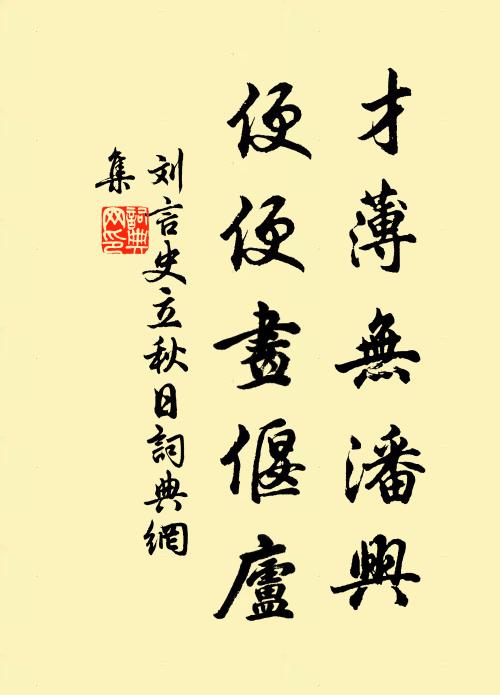 才薄無潘興
便便畫偃廬
刘言史立秋日詞典網
集
詞典网印